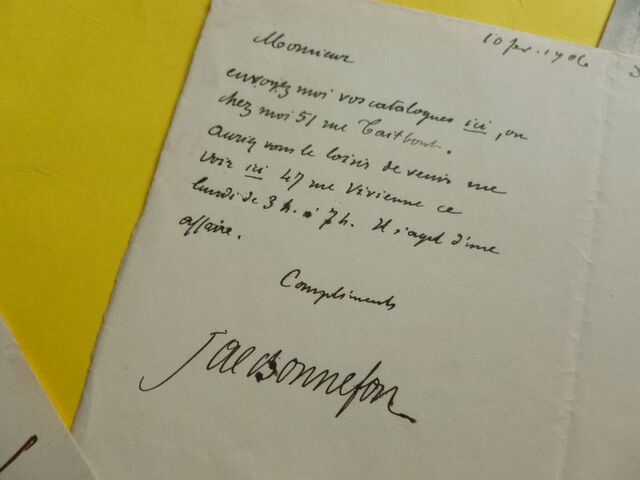 10 fev. 1906
Monsieur
envoyez moi vos catalogues ici, ou
chez moi 51 rue Taitbout.
Auriez vous le loisir de venir me
voir ici 47 rue Vivienne ce
lundi de 3 h. à 7 h. Il s'agit d'une
affaire.
Compliments
J de Bonnefon